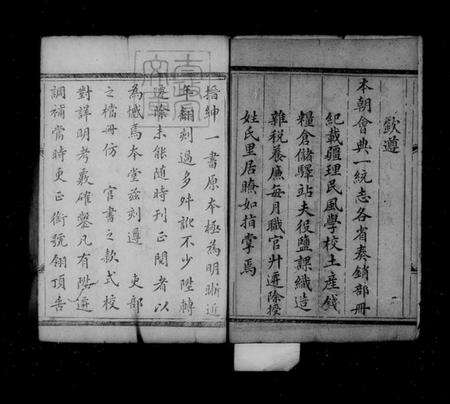 欽遵
本朝會典一統志各省奏銷部冊
紀載疆理民風學校土產錢
糧倉儲驛站夫役鹽課織造
雜稅養廉每月職官升遷除授
姓氏里居瞭如指掌焉
搢紳一書原本極為明晰近
年翻刻過多舛訛不少陞轉
遷除未能隨時刊正閱者以
為憾焉本堂茲刻遵　吏部
之檔冊仿　官書之款式校
對詳明考覈確鑿凡有陞遷
調補當時更正銜號翎頂